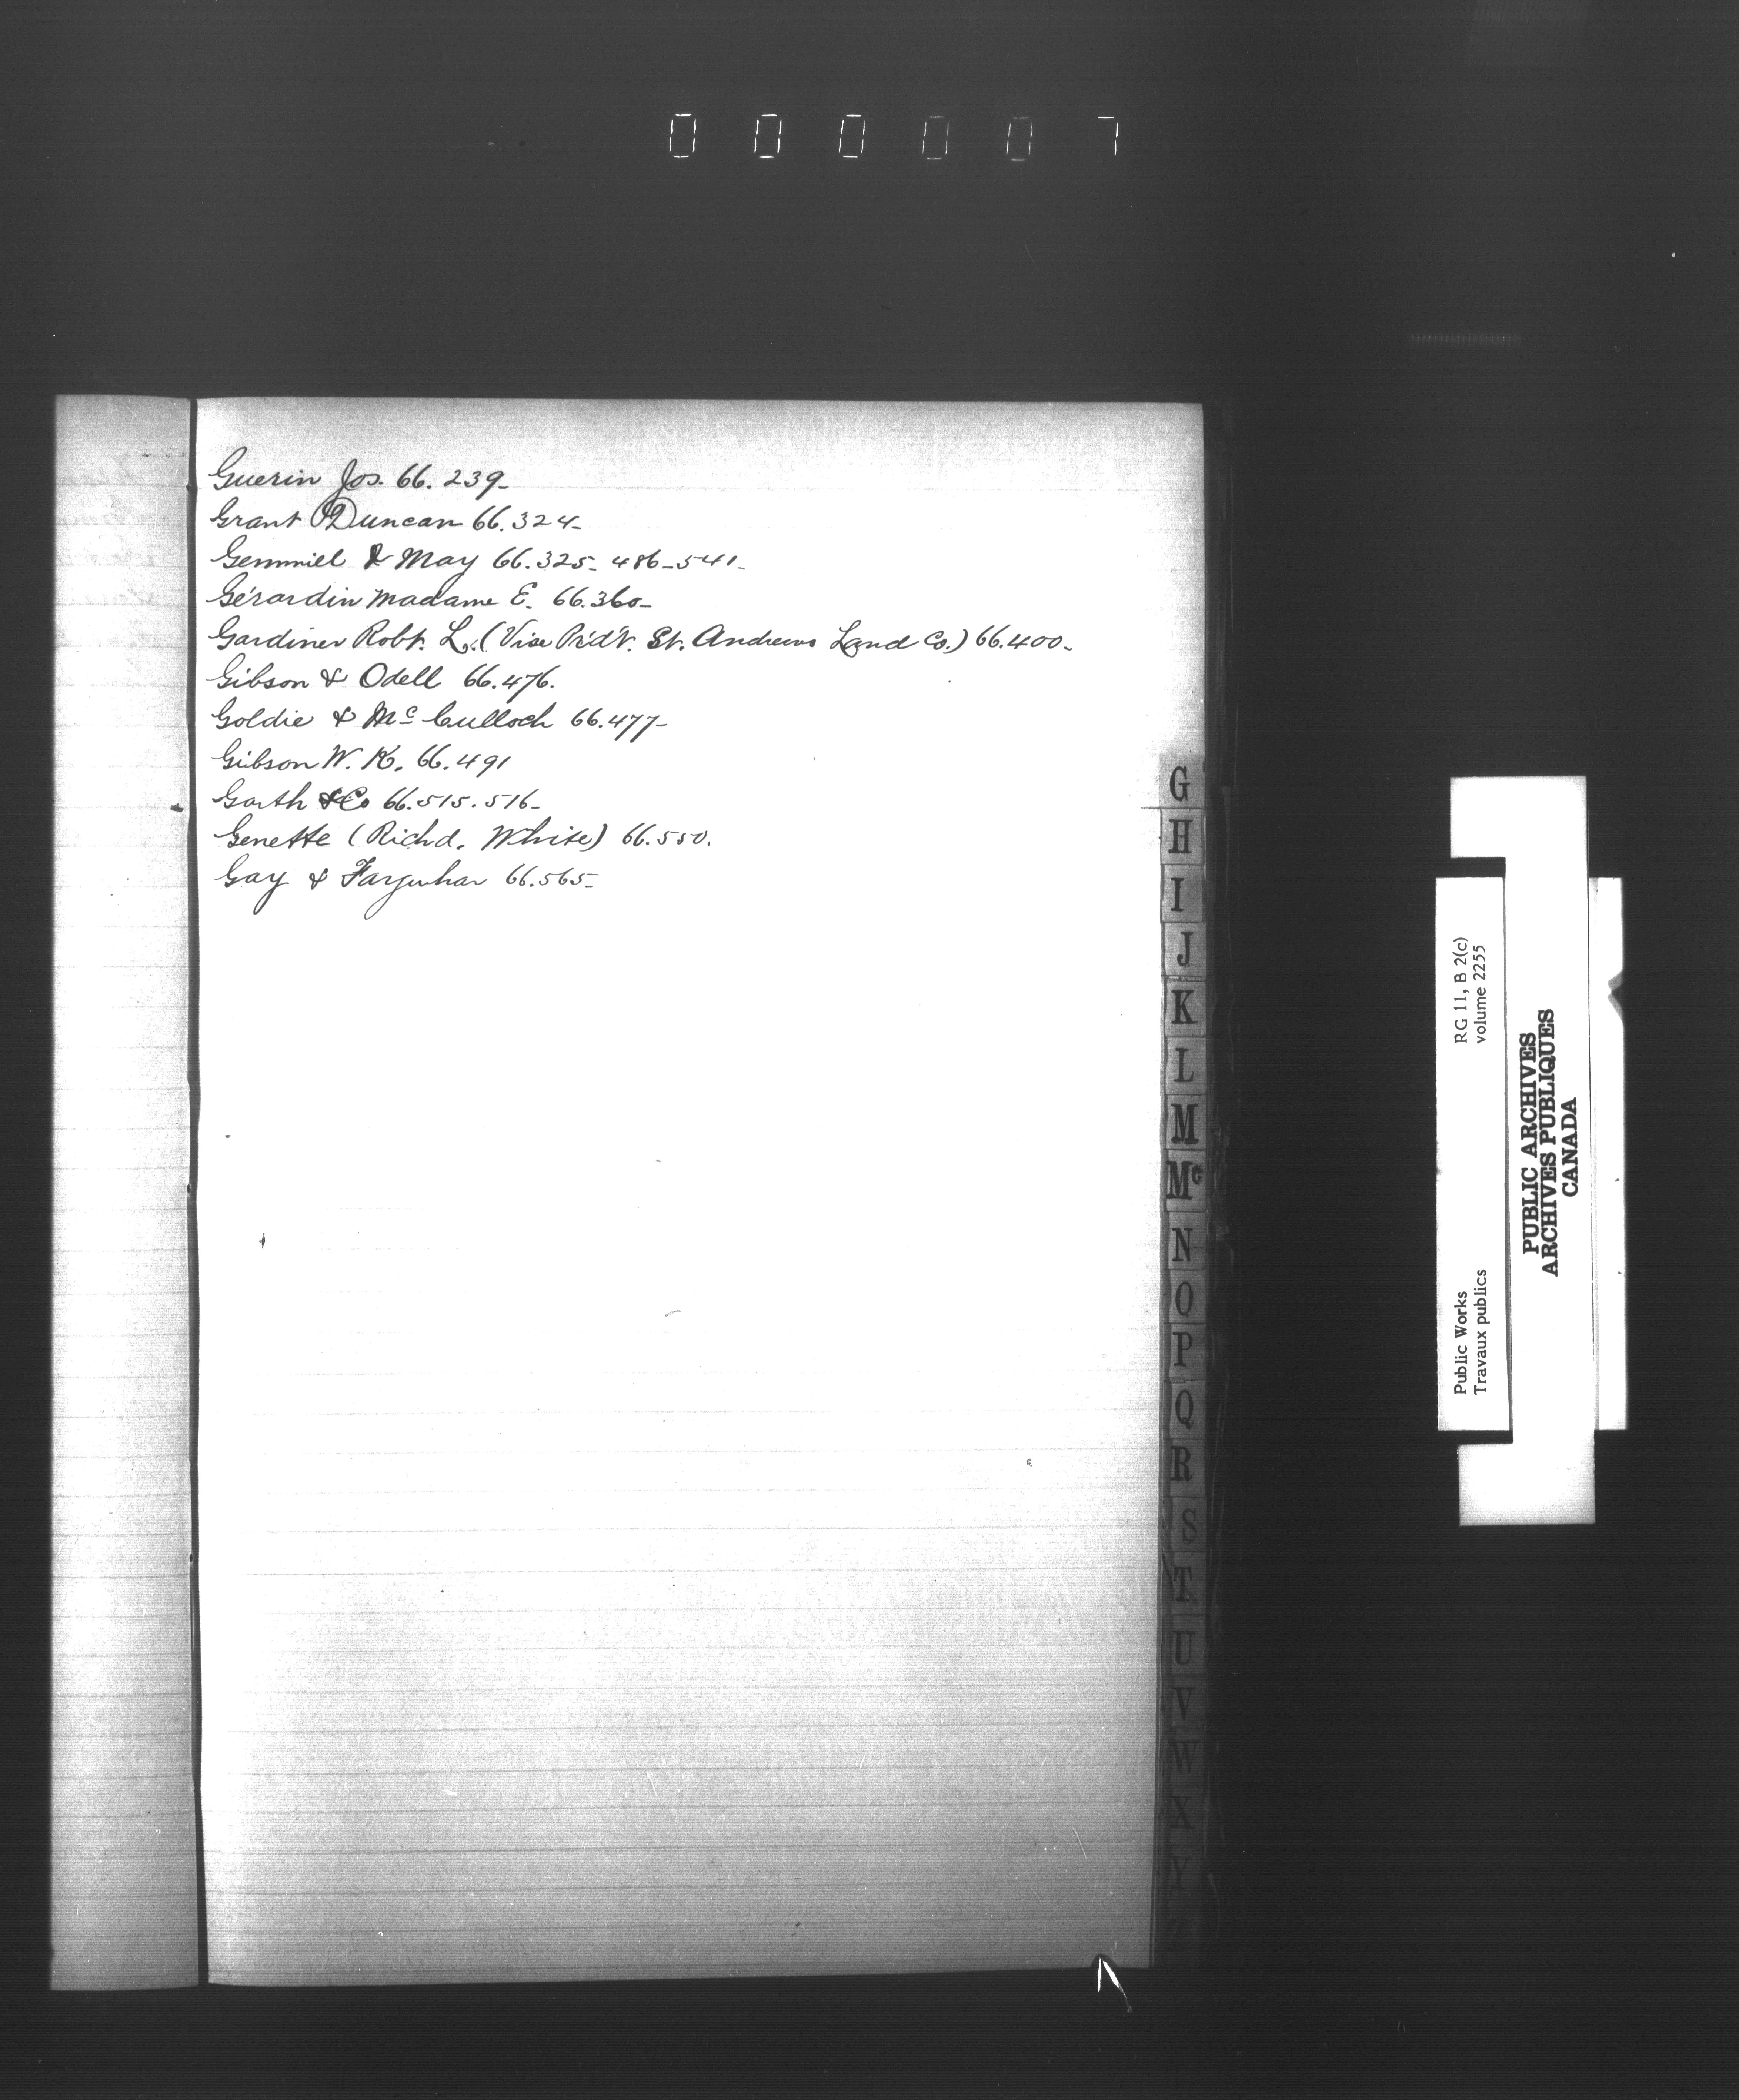 000007
Guerin Jos. 66. 239_
Grant Duncan 66. 324_
Gemmill & May 66. 325_ 486_541_
Gérardin Madame E. 66. 360_
Gardiner Robt. L. (Vise Pr'd't. St. Andrews Land Co.) 66. 400_
Gibson & Odell 66. 476.
Goldie & Mc Culloch 66. 477_
Gibson W. K. 66. 491
Garth & Co 66. 515. 516_
Genette (Richd. White) 66. 550.
Gay & Farquhar 66. 565_
G
H
I
J
K
L
M
Mc
N
O
P
Q
R
S
T
U
V
W
X
Y
Z
Public Works RG 11, B 2(c)
Travaux publics volume 2255
PUBLIC ARCHIVES
ARCHIVES PUBLIQUES
CANADA